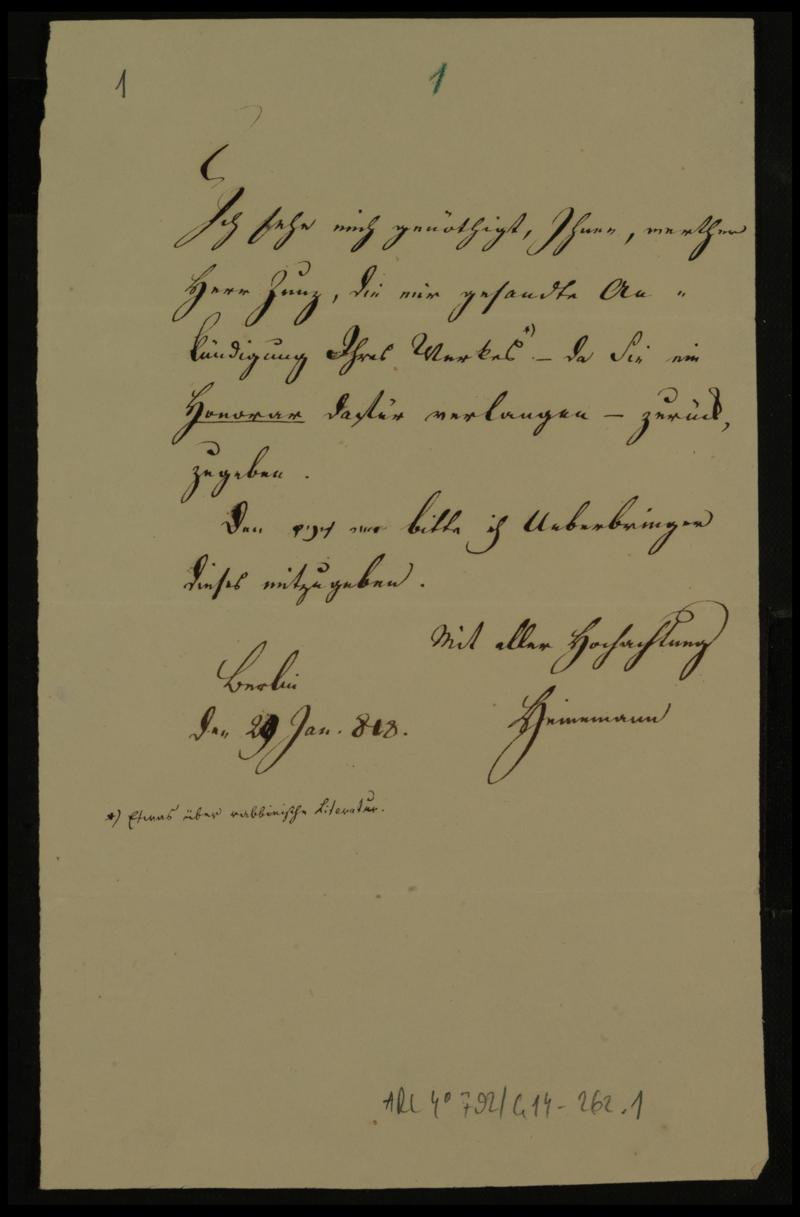 1 1
Ich sehe mich genöthigt, Ihnen, werther
Herr Zunz, die mir gesandte An-
kündigung Ihres Werkes *) – da Sie ein
Honorar dafür verlangen – zurück,
zugeben.
Den bitte ich Ueberbringer
dieses mitzugeben.
Mit aller Hochachtung
Berlin
den 29 Jan. 818. Heinemann
*) Etwas über rabbinische Literatur.
ARC 4° 792/G14-262.1